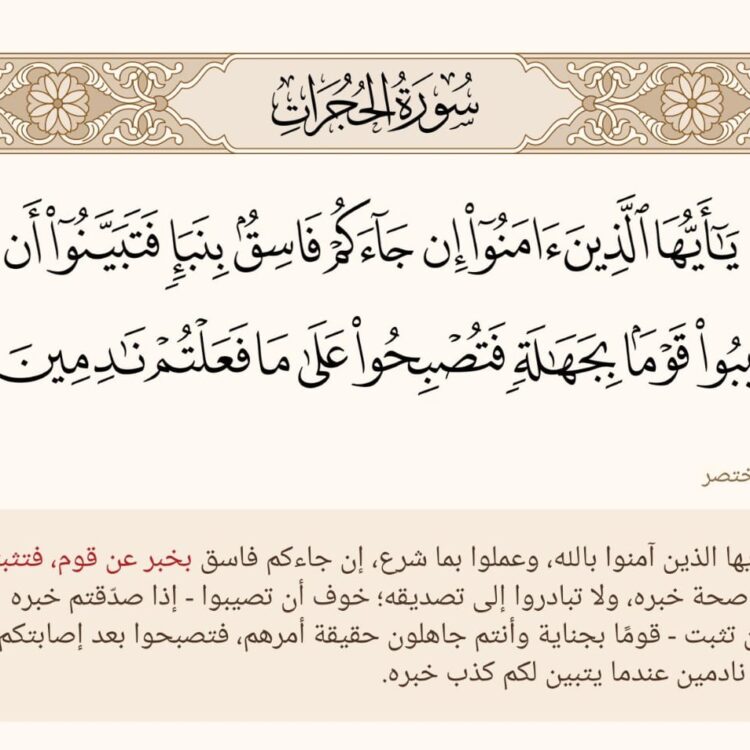 سُورَةُ الحُجُرَاتِ
يَٰٓأَيُّهَا ٱلَّذِينَ ءَامَنُوٓا۟ إِن جَآءَكُمْ فَاسِقٌۢ بِنَبَإٍۢ فَتَبَيَّنُوٓا۟ أَن
قَوْمًۢا بِجَهَٰلَةٍۢ فَتُصْبِحُوا۟ عَلَىٰ مَا فَعَلْتُمْ نَٰدِمِينَ
الذين آمنوا بالله، وعملوا بما شرع، إن جاءكم فاسق بخبر عن قوم،
صحة خبره، ولا تبادروا إلى تصديقه؛ خوف أن تصيبوا - إذا صدّقتم خبره
تثبت - قومًا بجناية وأنتم جاهلون حقيقة أمرهم، فتصبحوا بعد إصابتكم
نادمين عندما يتبين لكم كذب خبره.